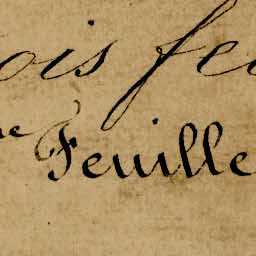 ois fe
e Feuille